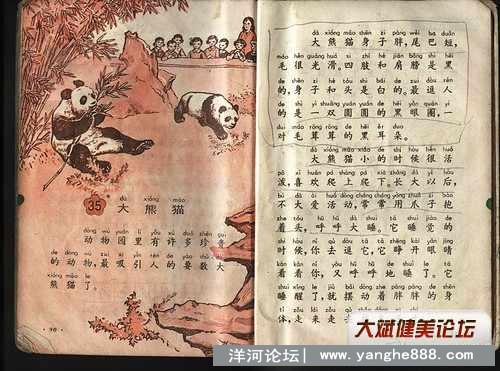 dà xióng māo
35 大熊猫
dòng wù yuán lǐ yǒu xǔ duō zhēn guì
动物园里有许多珍贵
de dòng wù zuì xī yǐn rén de yào shǔ dà
的动物,最吸引人的要数大
xióng māo le
熊猫了。
·90·
dà xióng māo shēn zi pàng wěi ba duǎn
大熊猫身子胖,尾巴短,
máo hěn guāng huá sì zhī hé jiān bǎng shì hēi
毛很光滑。四肢和肩膀是黑
de shēn zi hé tóu shì bái de zuì dòu rén
的,身子和头是白的。最逗人
de shì yī shuāng yuán yuán de hēi yǎn quān yī
的是一双圆圆的黑眼圈,一
duì máo róng róng de hēi ěr duo
对毛茸茸的黑耳朵。
dà xióng māo xiǎo de shí hou hěn huó
大熊猫小的时候很活
pō xǐ huān pá shàng pá xià zhǎng dà yǐ hòu
泼,喜欢爬上爬下。长大以后,
bù dà ài huó dòng cháng cháng yòng zhuǎ zi bào
不大爱活动,常常用爪子抱
zhe tóu hū hū dà shuì tā shuì jiào de
着头,呼呼大睡。它睡觉的
shí hou nǐ qù dòu tā tā zhēng kāi yǎn jīng
时候,你去逗它,它睁开眼睛
kàn kàn nǐ yòu hū hū de shuì le tā
看看你,又呼呼地睡了。它
shuì xǐng le jiù bǎi dòng zhe pàng pàng de shēn
睡醒了,就摆动着胖胖的身
tǐ zǒu lái zǒu qù
体,走来走去
大斌健美论坛
洋河论坛| www.yanghe888.com